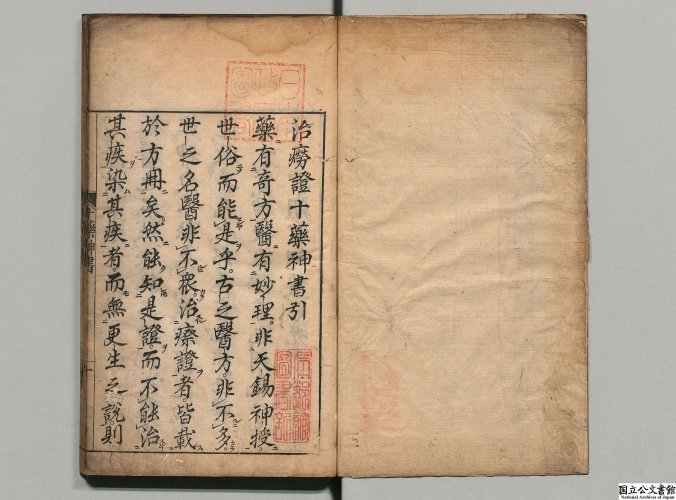 治癆證十藥神書引
藥有奇方醫有妙理非天錫神授
世俗而能是乎古之醫方非不多
世之名醫非不衆治瘵證者皆載
於方冊矣然能知是證而不能治
其疾染其疾者而無更生之説則
十藥神書
国立公文書館
National Archives of Japan